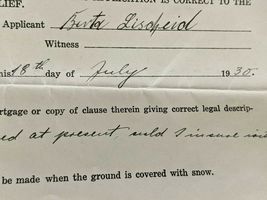 LIEF.
IS CORRECT TO THE
Applicant Berta Lischeid
Witness
his 18th day of July 1930.
rtgage or copy of clause therein giving correct legal descrip-
ed at present, sold & insure
be made when the ground is covered with snow.